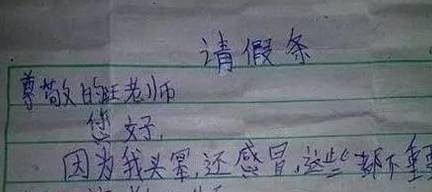 请假条
尊敬的旺老师
您好,
因为我头晕,还感冒,这些都不重要